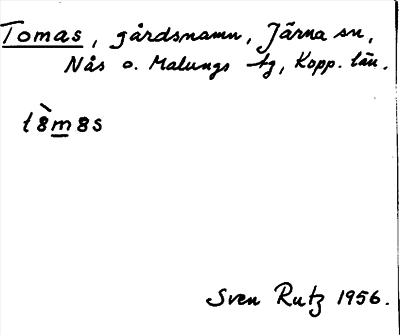 Tomas, gårdsnamn, Järna sn,
Nås o. Malungs tg, Kopp. län.
t8̀m8s
Sven Rutz 1956.